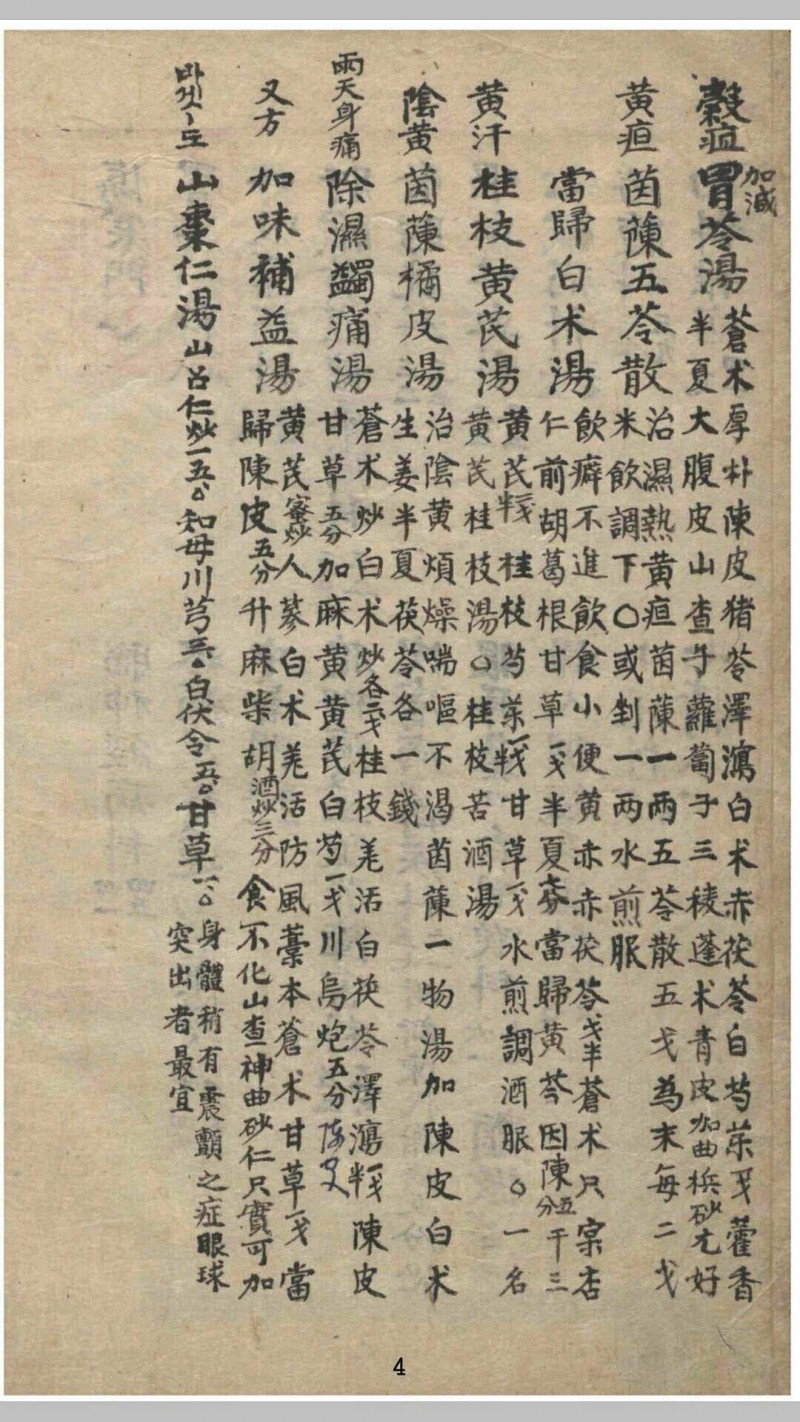 穀疸 加減胃苓湯 蒼朮 厚朴 陳皮 猪苓 澤瀉 白朮 赤茯苓 白芍 茱 戔 藿香
半夏 大腹皮 山查 子 蘿蔔子 三稜 蓬朮 青皮 加曲 檳 砂 尤好
黄疸 茵蔯五苓散 治濕熱黄疸 茵蔯一兩 五苓散五戈 為末 每二戈
米飲調下 ○或剉一兩 水煎服
當歸白朮湯 飲癖不進飲食 小便黄赤 赤茯苓戔半 蒼朮 只 杏
仁 前胡 葛根 甘草戔 半夏 當歸 黄芩 因陳五分 干三
黄汗 桂枝黄芪湯 黄芪 桂枝 芍 甘草戔 水煎調酒服 ○一名
黄芪桂枝湯 ○桂枝苦酒湯
陰黄 茵蔯橘皮湯 治陰黄煩燥喘嘔不渴 茵蔯一物湯 加 陳皮 白朮
生姜 半夏 茯苓 各一錢
雨天身痛 除濕蠲痛湯 蒼朮炒 白朮炒各二戔 桂枝 羌活 白茯苓 澤瀉 陳皮
甘草五分 加麻黄 黄芪 白芍一戔 川烏炮五分
又方 加味補益湯 黄芪蜜炒 人蔘 白朮 羌活 防風 藁本 蒼朮 甘草一戔 當
歸 陳皮五分 升麻 柴胡酒炒三分 食不化 山查 神曲 砂仁 只實 可加
山棗仁湯 山召仁炒一五 知母 川芎 白伏令 甘草 身體稍有震顫之症 眼球
突出者最宜
4